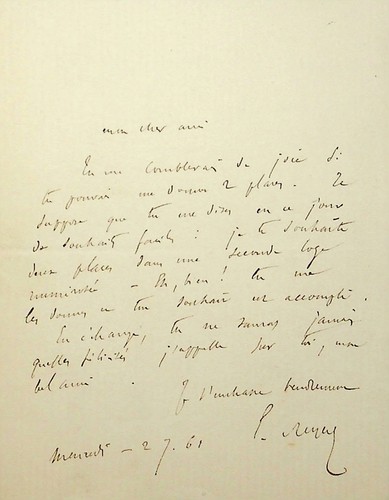 mon cher ami
Tu me comblerais de joie si
tu pouvais me donner 2 places. Je
suppose que tu me dises en ce jour
de souhaits faciles : je te souhaite
deux places dans une seconde loge
numérotée - Eh, bien ! tu me
les donnes et ton souhait est accompli.
En échange, tu ne sauras jamais
quelles félicités j'appelle sur toi, mon
bel ami.
Je t'embrasse tendrement
E. Reyer
mercredi - 2 7. 61